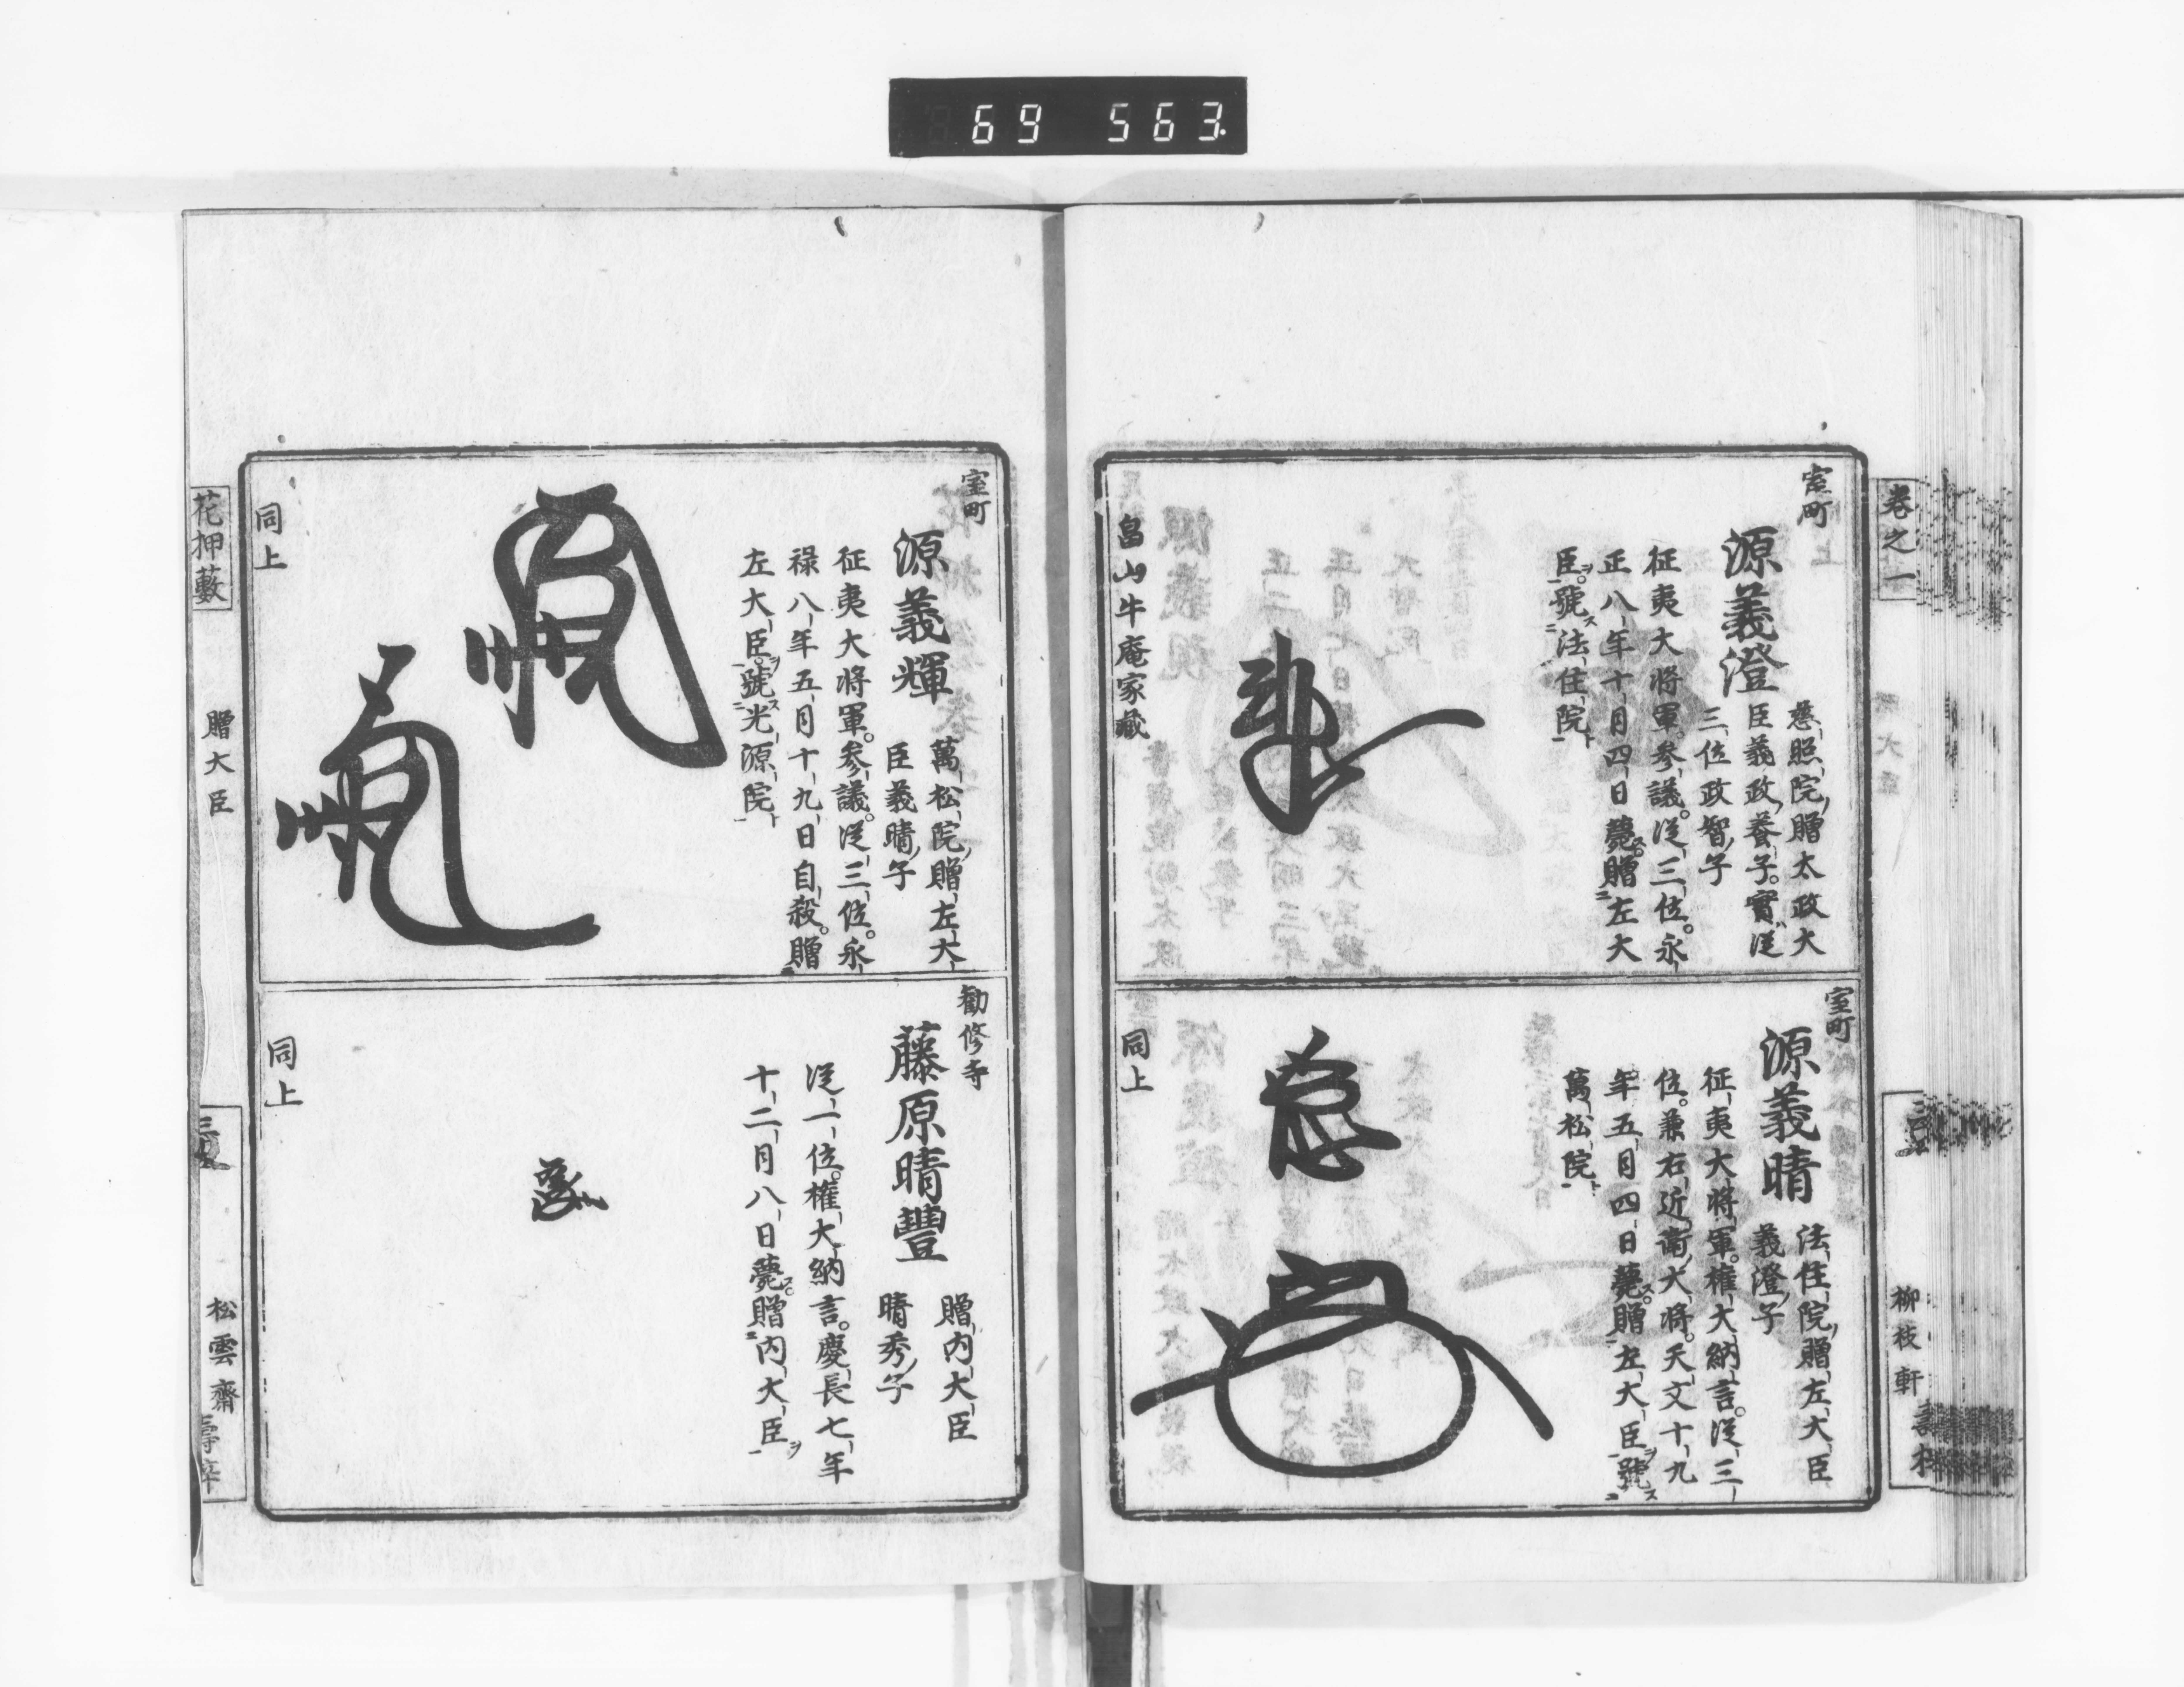 69 563.
卷之一
柳枝軒
室町
源義澄
慈照院贈太政大
臣義政養子。實從
三位政智子
征夷大將軍。參議。從三位。永
正八年十月四日薨。贈左大
臣。號法住院
畠山牛庵家藏
室町
源義晴
法住院贈左大臣
義澄子
征夷大將軍。權大納言。從三
位。兼右近衞大將。天文十九
年五月四日薨。贈左大臣。號
萬松院
同上
室町
源義輝
萬松院贈左大
臣義晴子
征夷大將軍。參議。從三位。永
祿八年五月十九日自殺。贈
左大臣。號光源院
同上
勸修寺
藤原晴豐
贈內大臣
晴秀子
從一位。權大納言。慶長七年
十二月八日薨。贈內大臣
同上
花押藪
贈大臣
松雲齋